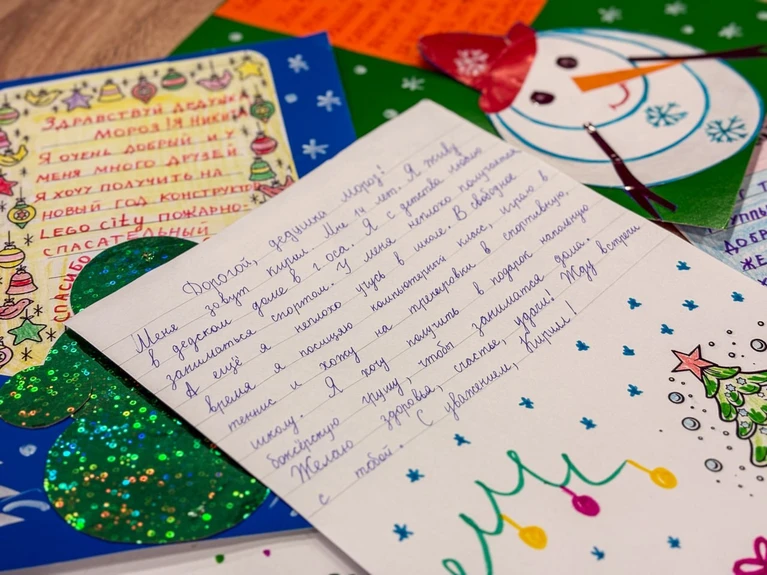 ЗДРАВСТВУЙ ДЕДУШКА
МОРОЗ! Я НИКИТА
Я ОЧЕНЬ ДОБРЫЙ И У
МЕНЯ МНОГО ДРУЗЕЙ
Я ХОЧУ ПОЛУЧИТЬ НА
НОВЫЙ ГОД КОНСТРУКТ
LEGO City ПОЖАРНО-
СПАСАТЕЛЬНЫЙ
СПАСИБО
Дорогой, дедушка мороз!
Меня зовут Кирилл. Мне 14 лет. Я живу
в детском доме в г. Оса. Я с детства люблю
заниматься спортом. У меня неплохо получается
А ещё я неплохо учусь в школе. В свободное
время я посещяю компьютерный класс, играю в
теннис и хожу на тренировки в спортивную
школу. Я хочу получить в подарок напольную
боксёрскую грушу, чтобы заниматся дома.
Желаю здоровья, счастья, удачи! Жду встречи
с тобой. С уважением, Кирилл!
ДОБР
ЖЕ